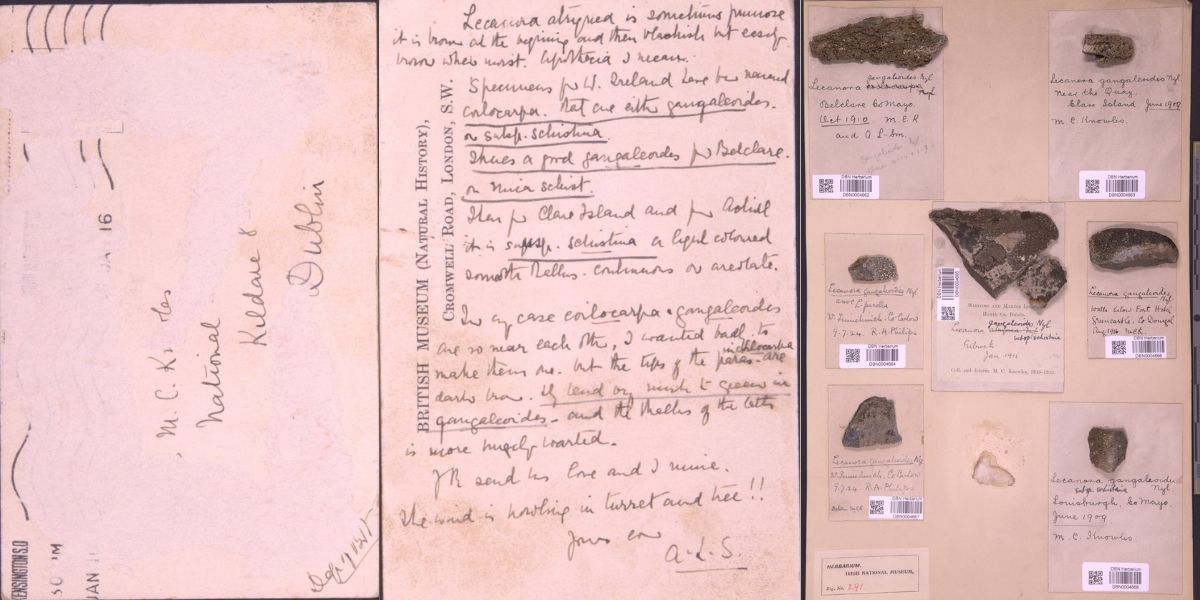 KENSINGTON S.O
JAN
16
M. C. K
National
Kildare 8
Dublin
BRITISH MUSEUM (NATURAL HISTORY),
CROMWELL ROAD, LONDON, S.W.
Lecanora is sometimes pruinose
it is brown at the beginning and then blackish but easily
brown when moist. Apothecia I mean.
Specimens fr W. Ireland have been named
coilocarpa. That are either gangaleoides.
or subsp. schistina.
There's a good gangaleoides fr Belclare.
on mica schist.
Then fr Clare Island and fr Achill
it is subsp. schistina a light coloured
smooth thallus. continuous or areolate.
In any case coilocarpa & gangaleoides
are so near each other, I wanted badly to
make them one. but the tips of the paras. are
in coilocarpa
dark brown. & tend very much to green in
gangaleoides - and the thallus of the latter
is more hugely warted.
JR sends his love and I mine.
The wind is howling in turret and tree!!
Yours ever
A. L. S.
gangaleoides Nyl.
Lecanora coilocarpa Nyl
Belclare Co Mayo.
Oct 1910 M.C.K
and A L. Sm.
DBN Herbarium
DBN0004662
Lecanora gangaleoides Nyl.
Near the Quay,
Clare Island June 1909
M. C. Knowles.
DBN Herbarium
DBN0004663
Lecanora gangaleoides Nyl
L. parella
Co Carlow
9.7.24. R. A. Philips
DBN Herbarium
DBN0004664
Lecanora gangaleoides Nyl
subsp. schistina
Jan 1911
Coll. and determ. M. C. Knowles, 1910-1913.
Lecanora gangaleoides
Nyl.
below Fort Hotel
Greencastle, Co Donegal
Aug 1916
DBN Herbarium
DBN0004666
Lecanora gangaleoides Nyl
Co Carlow
9.7.24. R. A. Philips
DBN Herbarium
DBN0004667
Lecanora gangaleoides
subsp. schistina Nyl.
Louisburgh, Co Mayo.
June 1909
M. C. Knowles.
DBN Herbarium
DBN0004668
HERBARIUM.
IRISH NATIONAL MUSEUM,
Reg. No. 291.